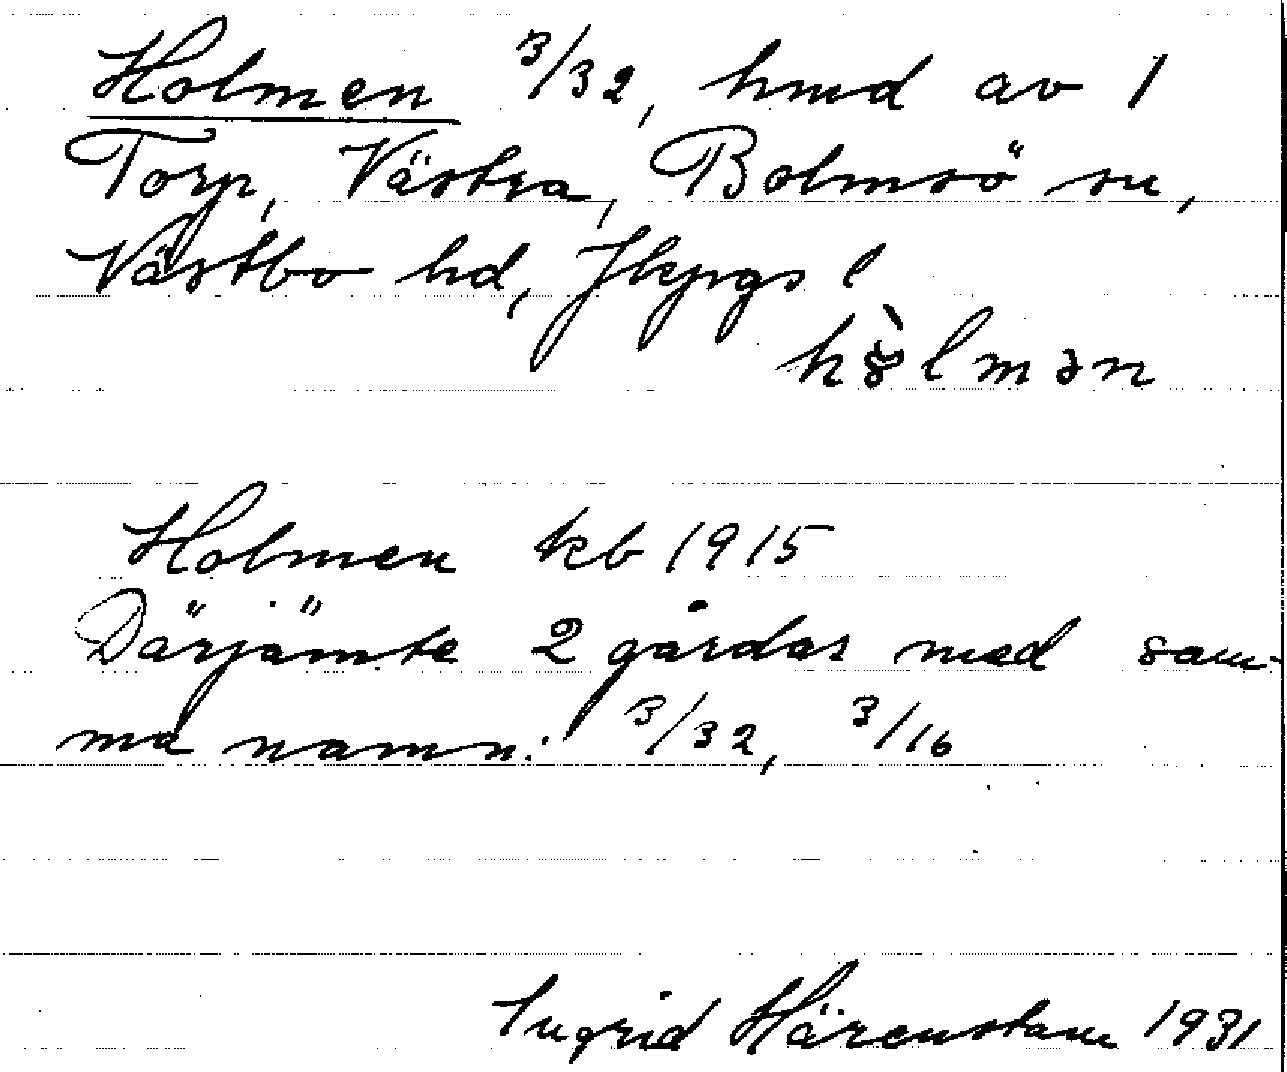 Holmen 3/32, hmd av 1
Torp, Västra, Bolmsö sn,
Västbo hd, Jkpgs l
hòlmən
Holmen kb 1915
Därjämte 2 gårdar med sam-
ma namn: 3/32, 3/16
Ingrid Härenstam 1931